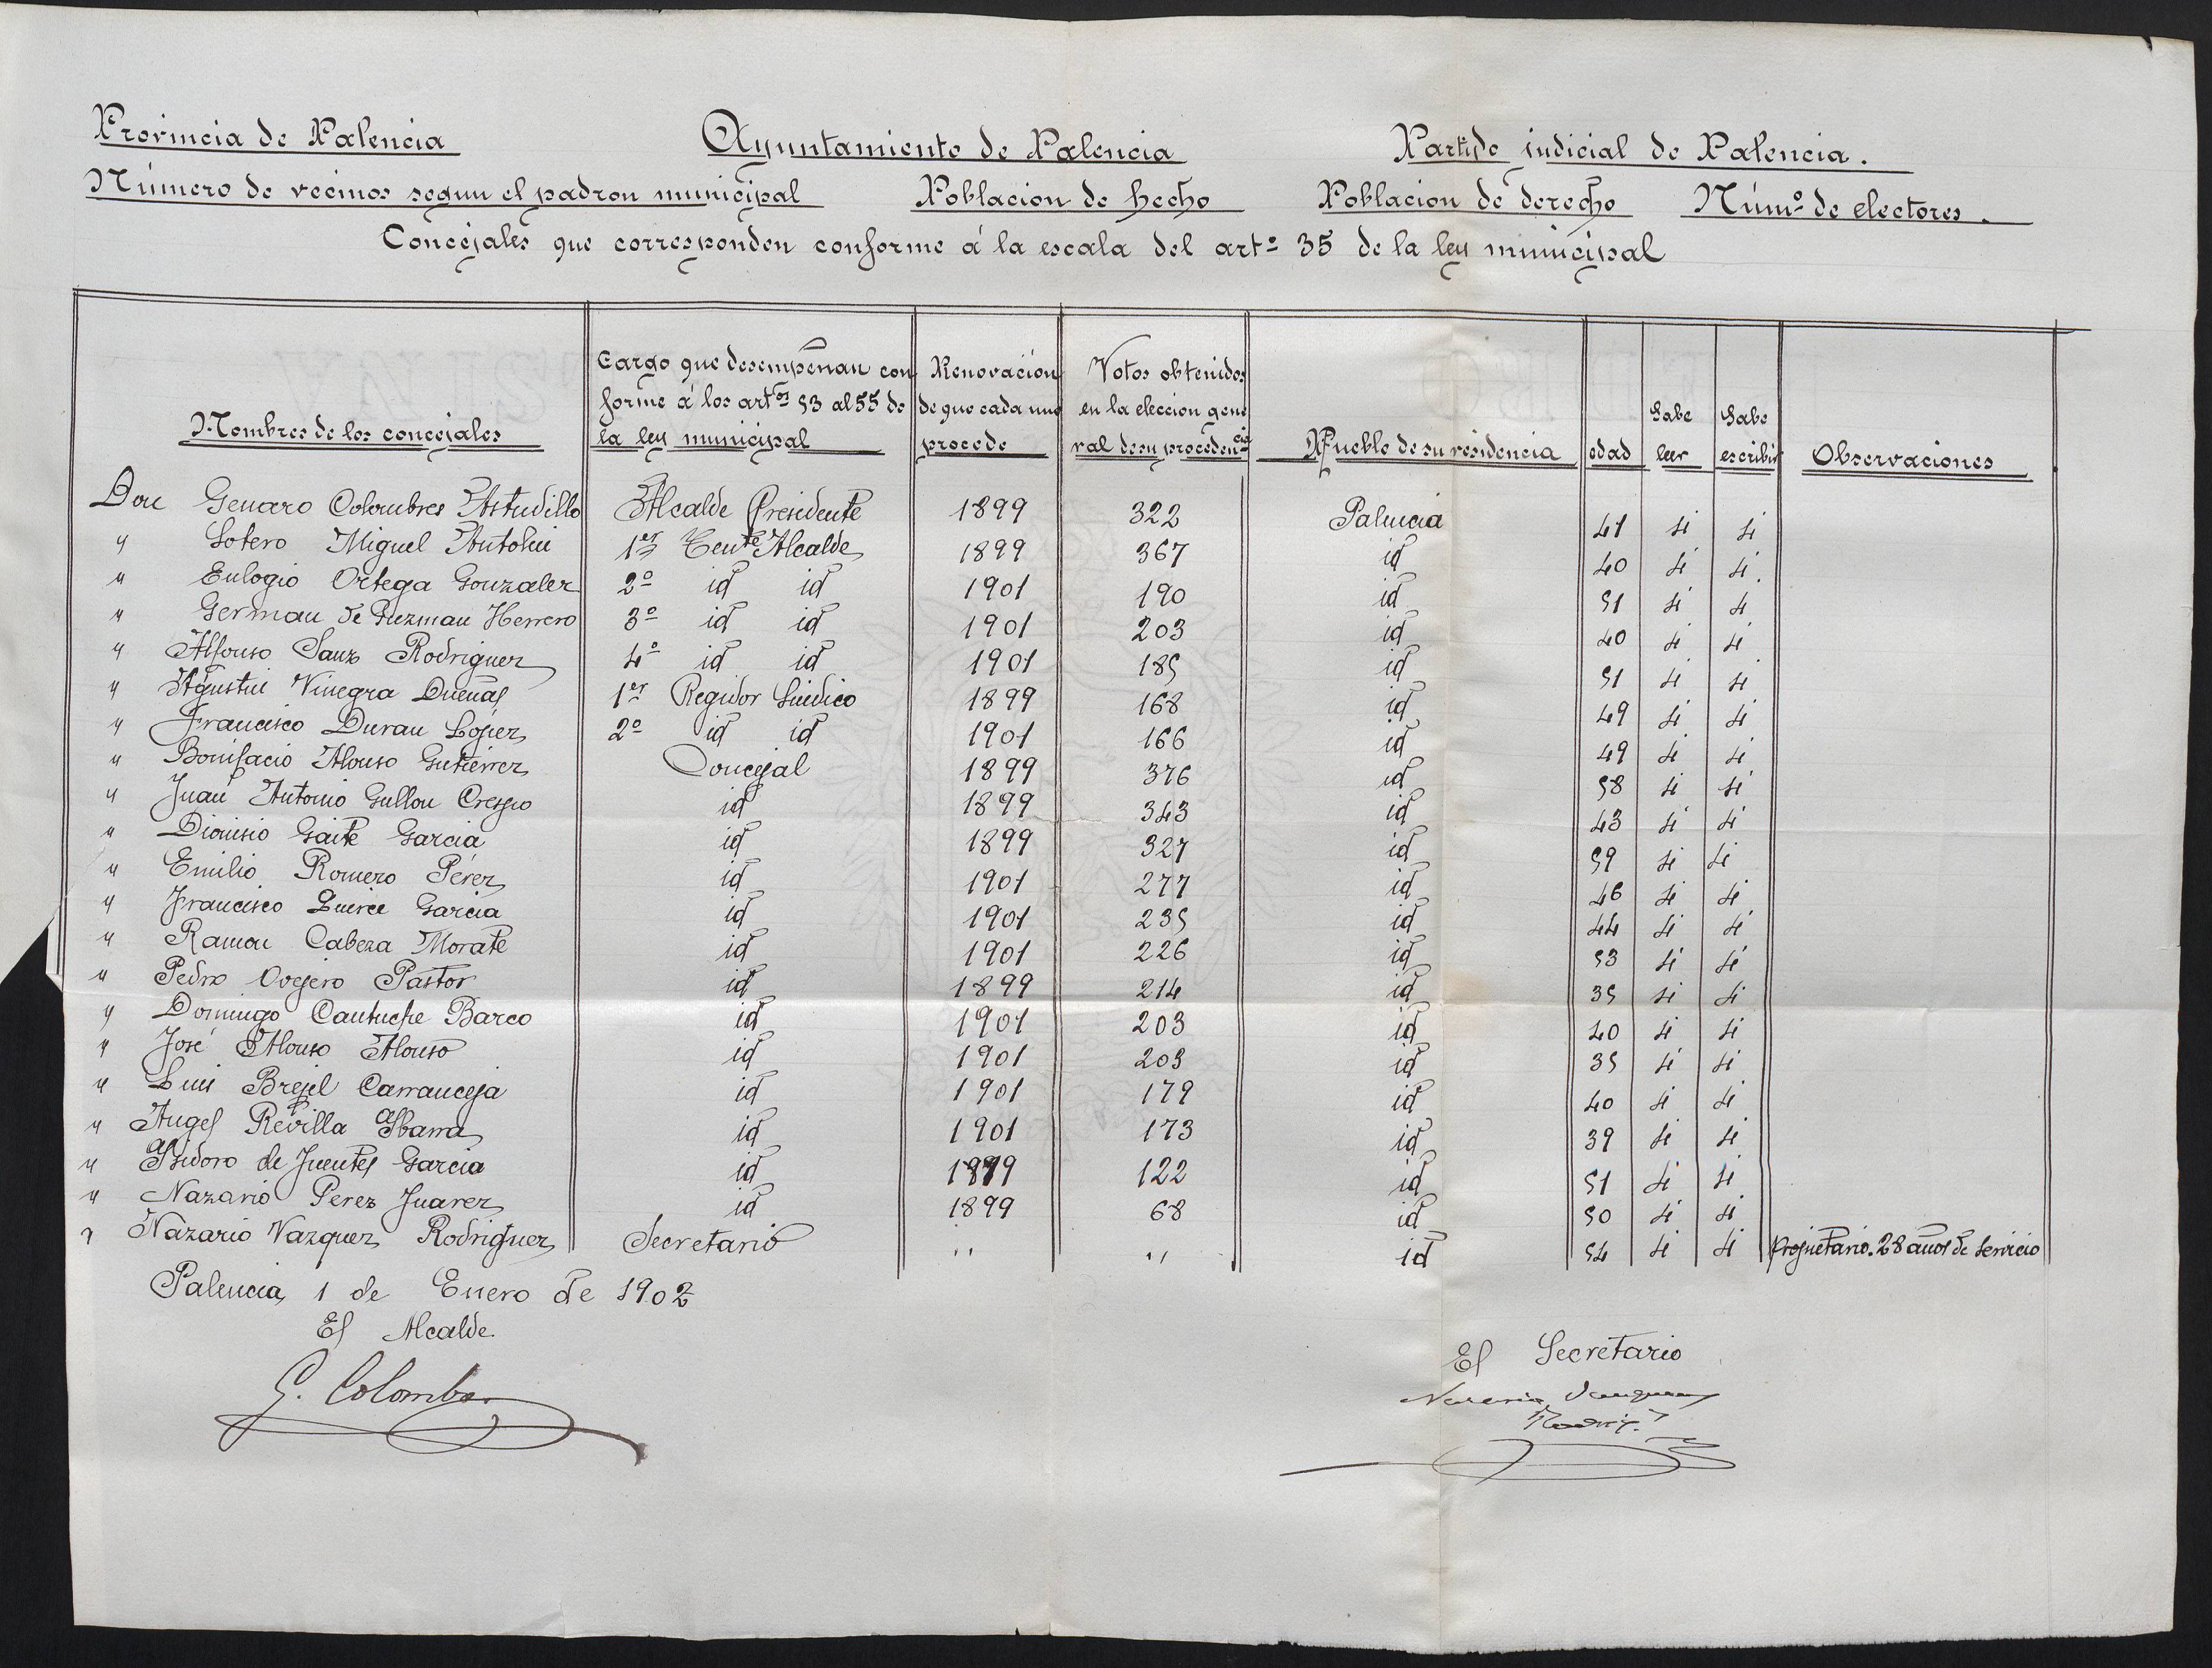 Provincia de Palencia Ayuntamiento de Palencia Partido judicial de Palencia.
Número de vecinos segun el padron municipal Poblacion de hecho Poblacion de derecho Núm.º de electores.
Concejales que corresponden conforme á la escala del artº 35 de la ley municipal
Nombres de los concejales | Cargo que desempeñan conforme á los artos 53 al 55 de la ley municipal | Renovación de que cada uno procede | Votos obtenidos en la eleccion general de su procedencia | Pueblo de su residencia | edad | Sabe leer | Sabe escribir | Observaciones
Don Genaro Colombres Astudillo Alcalde Presidente 1899 322 Palencia 41 si si
" Sotero Miguel Antolin 1er Tente Alcalde 1899 367 id 40 si si.
" Eulogio Ortega Gonzalez 2º id id 1901 190 id 51 si si
" German de Guzman Herrero 3º id id 1901 203 id 40 si si
" Alfonso Sanz Rodriguez 4º id id 1901 185 id 51 si si
" Agustin Vinegra Dueñas 1er Regidor Sindico 1899 168 id 49 si si
" Francisco Duran López 2º id id 1901 166 id 49 si si
" Bonifacio Alonso Gutiérrez Concejal 1899 376 id 58 si si
" Juan Antonio Gullon Crespo id 1899 343 id 43 si si
" Dionisio Gaite Garcia id 1899 327 id 59 si si
" Emilio Romero Pérez id 1901 277 id 46 si si
" Francisco Guirce Garcia id 1901 235 id 44 si si
" Ramon Cabeza Morate id 1901 226 id 53 si si
" Pedro Ovejero Pastor id 1899 214 id 35 si si
" Domingo Cantuche Barco id 1901 203 id 40 si si
" José Alonso Alonso id 1901 203 id 35 si si
" Luis Brejel Carranceja id 1901 179 id 40 si si
" Angel Revilla Ybarra id 1901 173 id 39 si si
" Ysidoro de Fuentes Garcia id 1899 122 id 51 si si
" Nazario Perez Juarez id 1899 68 id 50 si si
" Nazario Vazquez Rodriguez Secretario " " id 54 si si propietario. 28 años de servicio
Palencia 1 de Enero de 1902
El Alcalde
El Secretario
G. Colombres
Nazario Vazquez
Rodrig.